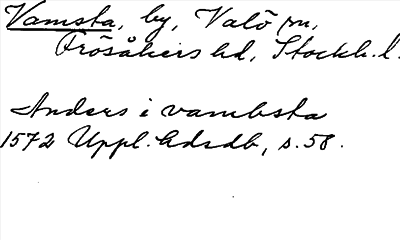 Vamsta, by, Valö sn,
Frösåkers hd, Stockh. l.
Anders i vambsta
1572 Uppl. hdrdb, s. 58.